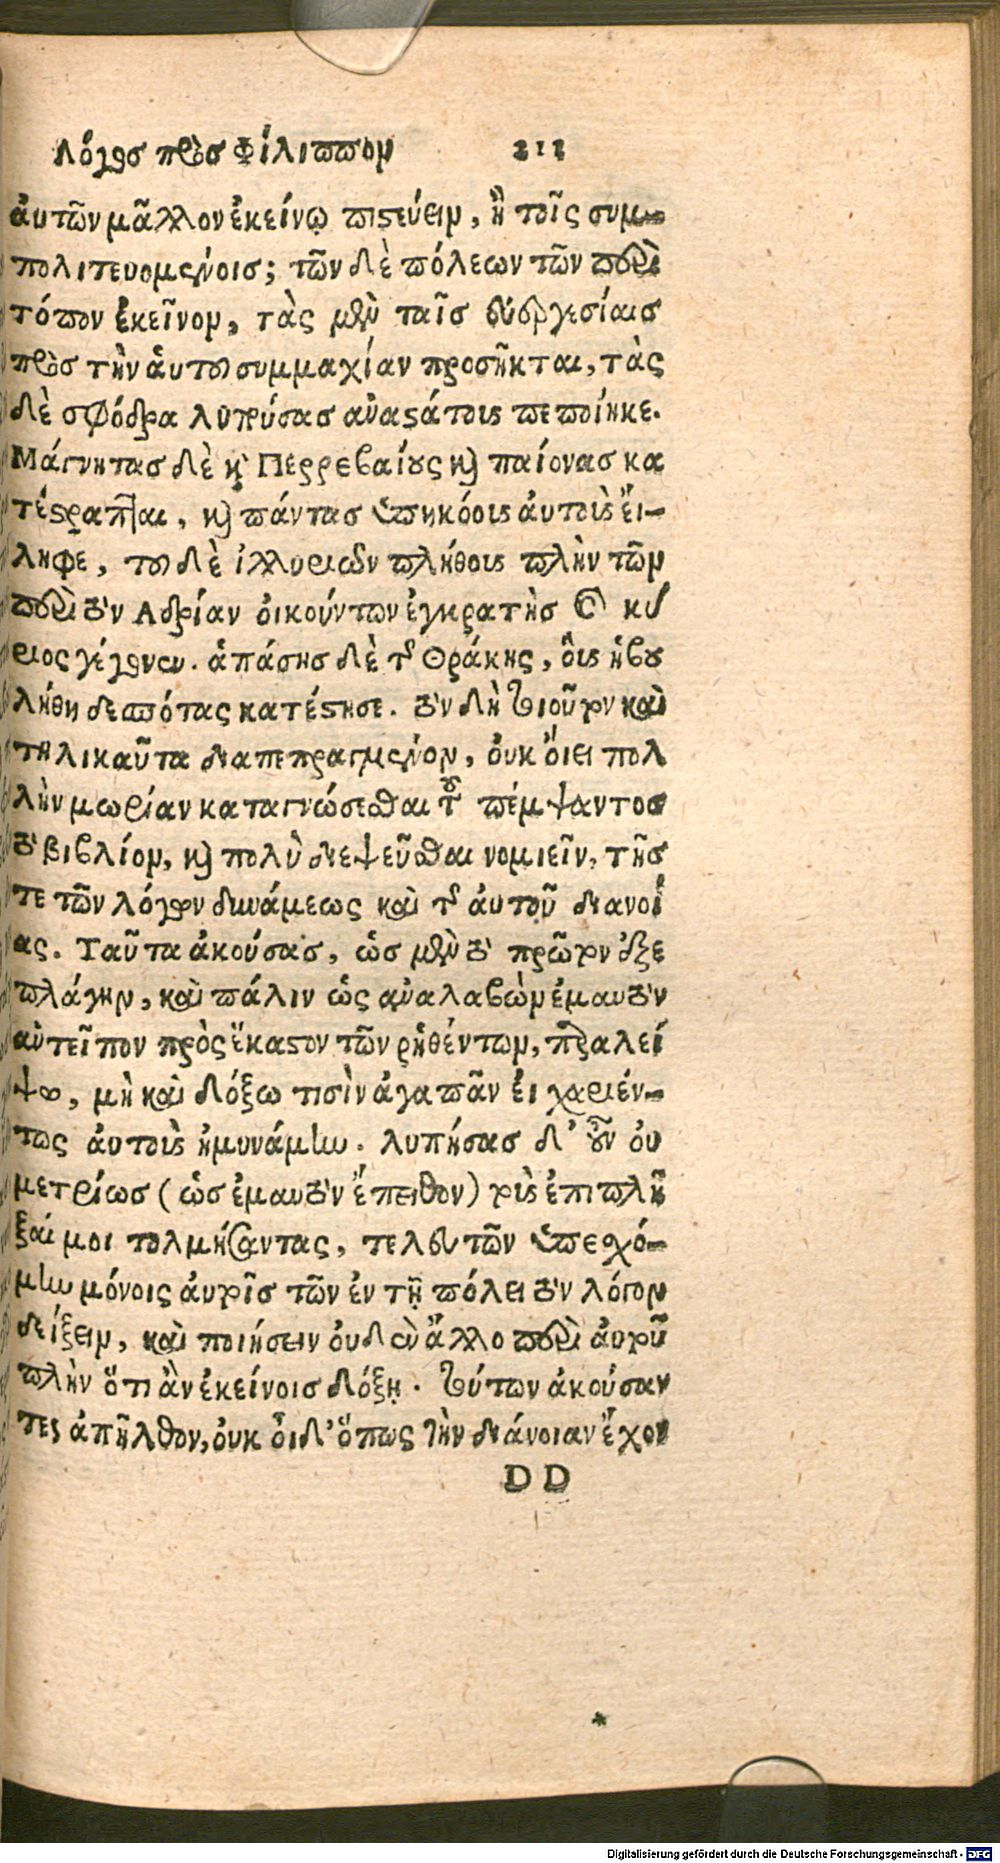 Λόγος πρὸς Φίλιππον 212
ἀυτῶν μᾶλλον ἐκείνῳ πιστεύειν, ἢ τοῖς συμ-
πολιτευομένοις; τῶν δὲ πόλεων τῶν περὶ
τόπον ἐκεῖνον, τὰς μὲν ταῖς εὐεργεσίαις
πρὸς τὴν ἁυτοῦ συμμαχίαν προσῆκται, τὰς
δὲ σφόδρα λυπρύσας ἀναστάτους πεποίηκε.
Μάγνητας δὲ καὶ Περρεβαίους καὶ παίονας κα
τέστραπται, καὶ πάντας ὑπηκόους ἀυτοὺς ἔι-
ληφε, τοῦ δὲ ἰλλυριῶν πλήθους πλὴν τῶν
περὶ τὸν Ἀδρίαν οἰκούντων ἐγκρατὴς καὶ κύ
ριος γέγονεν. ἁπάσης δὲ τῆς Θράκης, ὃυς ἠβου
λήθη δεσπότας κατέστησε. τὸν δὴ τοιοῦτον καὶ
τηλικαῦτα διαπεπραγμένον, ὀυκ ὄιει πολ
λὴν μωρίαν καταγνώσεσθαι τοῦ πέμψαντος
τὸ βιβλίον, καὶ πολὺ διεψεῦσθαι νομιεῖν, τῆς
τε τῶν λόγων δυνάμεως καὶ τῆς ἁυτοῦ διανοί
ας. Ταῦτα ἀκούσας, ὡς μὲν τὸ πρῶτον ἐξε
πλάγην, καὶ πάλιν ὡς ἀναλαβὼν ἐμαυτὸν
ἀντεῖπον πρὸς ἕκαστον τῶν ῥηθέντων, παραλεί
ψω, μὴ καὶ δόξω τισὶν ἀγαπᾶν ἐι χαριέν-
τως ἀυτοὺς ἠμυνάμην. λυπήσας δ' οὖν ὀυ
μετρίως (ὡς ἐμαυτὸν ἔπειθον) τοὺς ἐπιπλῆ
ξαί μοι τολμήσαντας, τελευτῶν ὑπεσχό-
μην μόνοις ἀυτοῖς τῶν ἐν τῇ πόλει τὸν λόγον
δείξειν, καὶ ποιήσειν ὀυδὲν ἄλλο περὶ ἀυτοῦ
πλὴν ὅτι ἂν ἐκείνοις δόξῃ. τούτων ἀκούσαν
τες ἀπῆλθον, ὀυκ ὀῖδ' ὅπως τὴν διάνοιαν ἔχον
DD
*
Digitalisierung gefördert durch die Deutsche Forschungsgemeinschaft - DFG